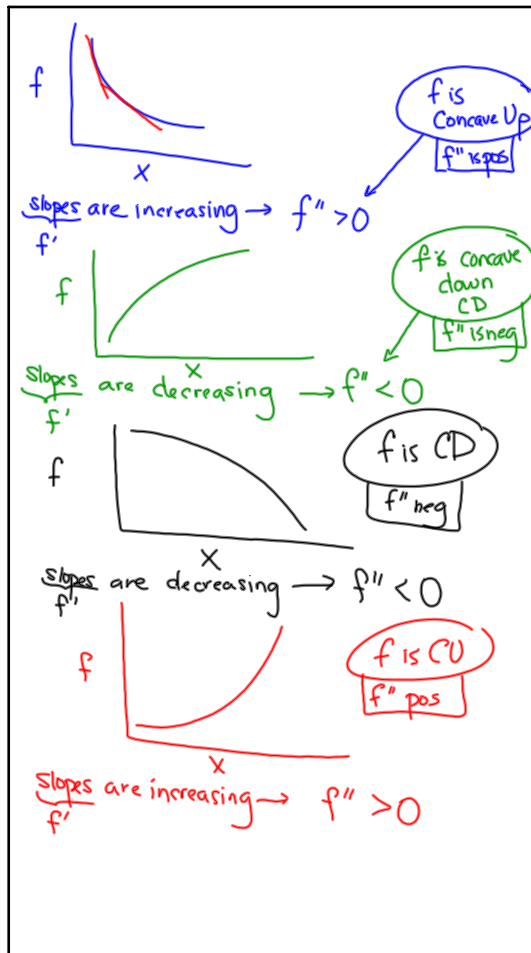 f
x
f is
Concave Up
f" is pos
slopes are increasing → f" > 0
f'
f
x
f is concave
down
CD
f" is neg
slopes are decreasing → f" < 0
f'
f
x
f is CD
f" neg
slopes are decreasing → f" < 0
f"
f
x
f is CU
f" pos
slopes are increasing → f" > 0
f'